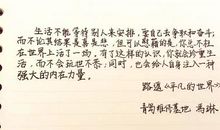 生活不能等待别人来安排，要自己去争取和奋斗；
而不论其结果是喜是悲，但可以慰藉的是，你总不枉
在世界上活了一场。有了这样的认识，你就会珍重生
活，而不会玩世不恭；同时，也会给人自身注入一种
强大的内在力量。
路遥《平凡的世界》
维修基地